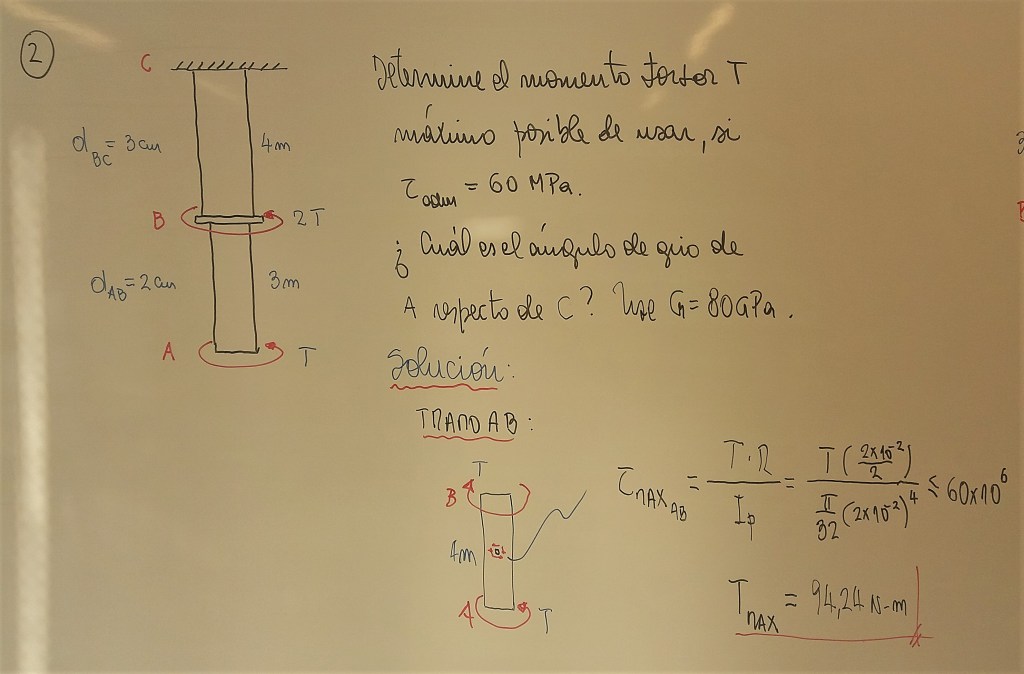 2
C
d_BC = 3cm
4m
B
2T
d_AB = 2cm
3m
A
T
Determine el momento torsor T
máximo posible de usar, si
τ_adm = 60 MPa.
¿Cuál es el ángulo de giro de
A respecto de C? Use G = 80GPa.
Solución:
TRAMO AB:
T
B
4m
A
T
τ_MAX_AB = T·R / I_p = T(2x10^-2 / 2) / (π/32 (2x10^-2)^4) ≤ 60x10^6
T_MAX = 94,24 N-m